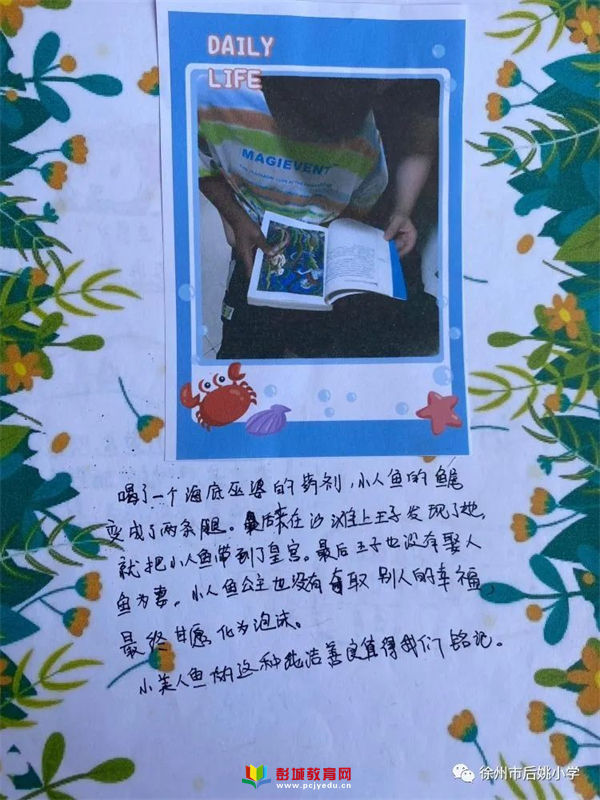 DAILY
LIFE
MAGIEVENT
喝了一个海底巫婆的药剂,小人鱼的鱼尾
变成了两条腿。最后来在沙滩上王子发现了她,
就把小人鱼带到了皇宫。最后王子也没有娶人
鱼为妻。小人鱼公主也没有夺取别人的幸福,
最终甘愿化为泡沫。
小美人鱼的这种纯洁善良值得我们铭记。
彭城教育网
www.pcjyedu.cn
徐州市后姚小学